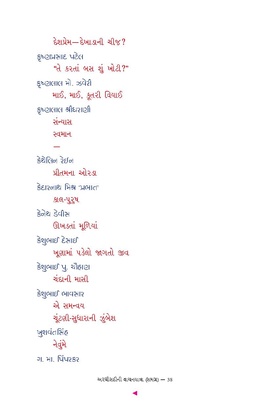 દેશપ્રેમ—દેખાડાની ચીજ?
કૃષ્ણપ્રસાદ પટેલ
"તે કરતાં બસ શું ખોટી?"
કૃષ્ણલાલ મો. ઝવેરી
માઈ, માઈ, કૂતરી વિયાઈ
કૃષ્ણલાલ શ્રીધરાણી
સંન્યાસ
સ્વમાન
—
કેથેલિન રેઈન
પ્રીતમના ઓરડા
કેદારનાથ મિશ્ર 'પ્રભાત'
કાલ-પુરુષ
કેનેથ ડેવીસ
ઊખડતાં મૂળિયાં
કેશુભાઈ દેસાઈ
ખૂણામાં પડેલો જાગતો જીવ
કેશુભાઈ પુ. ચૌહાણ
ચંદાની માસી
કેશુભાઈ ભાવસાર
એ સમન્વય
ચૂંટણી-સુધારાની ઝુંબેશ
ખુશવંતસિંહ
નેવુંમે
ગ. મા. પિંપરકર
અરધીસદીની વાચનયાત્રા (૪માંથી) — 39
◀